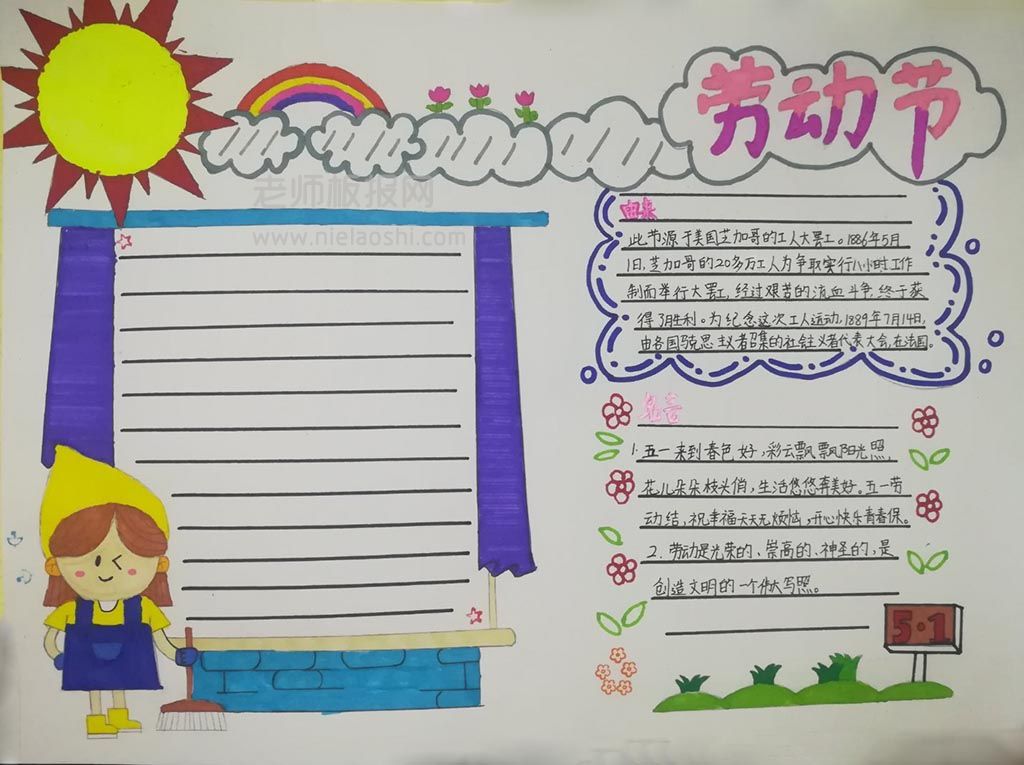 劳动节
老师板报网
www.nielaoshi.com
由来
此节源于美国芝加哥的工人大罢工。1886年5月
1日,芝加哥的20多万工人为争取实行八小时工作
制而举行大罢工,经过艰苦的流血斗争,终于获
得了胜利。为纪念这次工人运动,1889年7月14日,
由各国马克思主义者召集的社会主义者代表大会,在法国。
1.五一来到春色好,彩云飘飘阳光照,
花儿朵朵枝头俏,生活悠悠奔美好。五一劳
动结,祝幸福天天无烦恼,开心快乐青春保。
2.劳动是光荣的、崇高的、神圣的,是
创造文明的一个伟大写照。
5·1